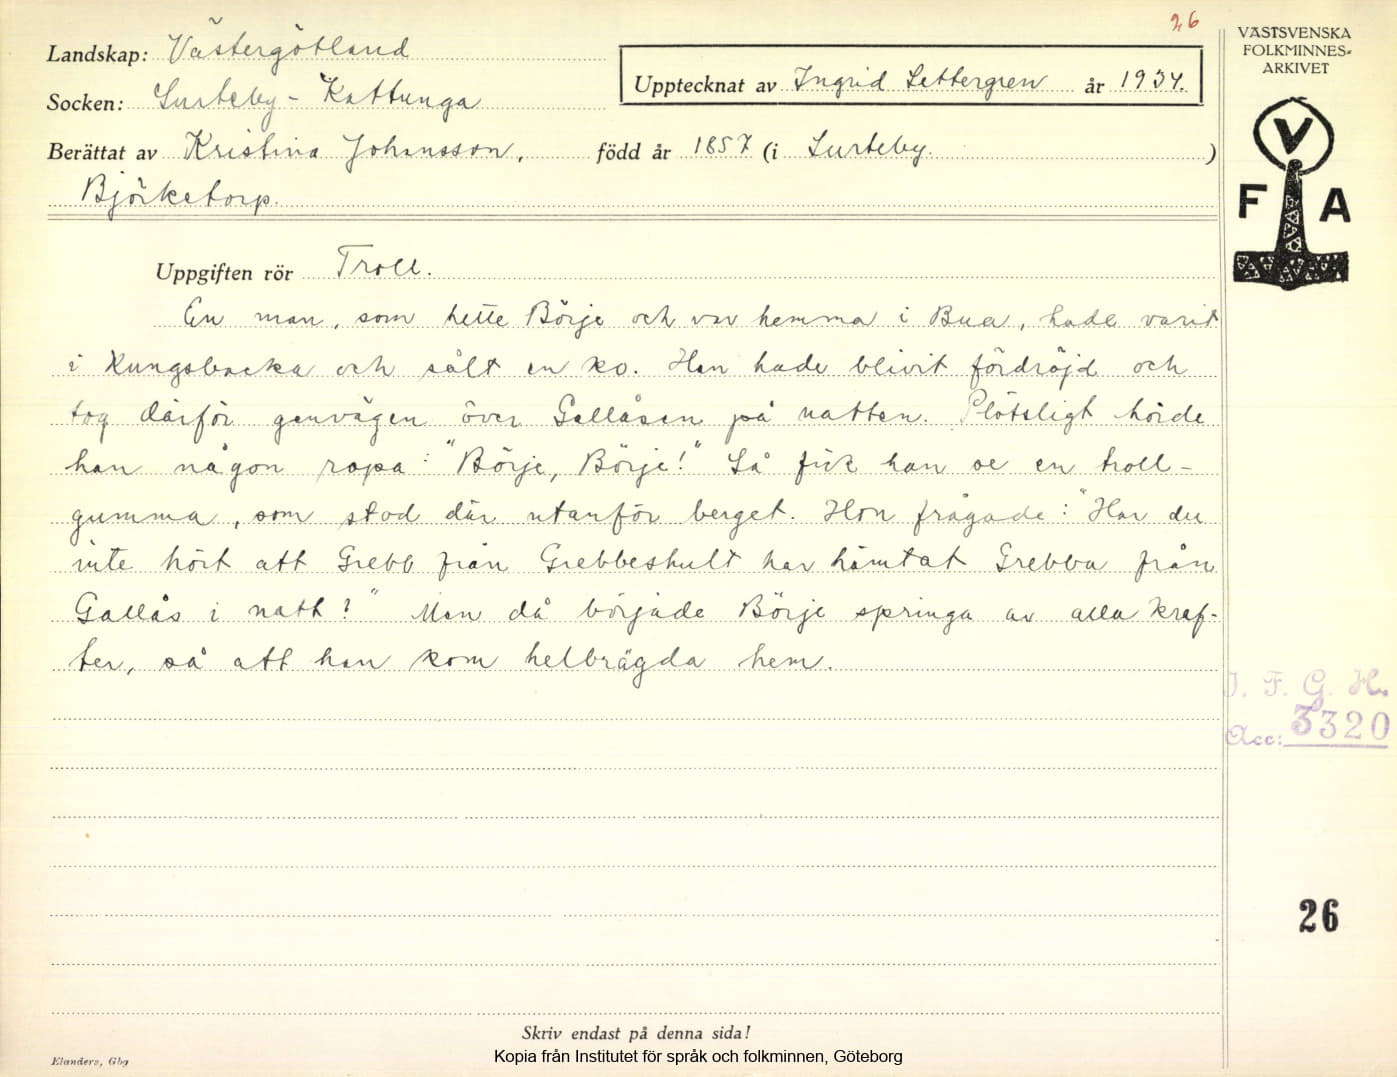 26
Landskap: Västergötland
Socken: Surteby - Kattunga
Upptecknat av Ingrid Settergren år 1934.
Berättat av Kristina Johansson, född år 1857 (i Surteby. )
Björketorp.
VÄSTSVENSKA
FOLKMINNES-
ARKIVET
V
F A
Uppgiften rör Troll.
En man, som hette Börje och var hemma i Bua, hade varit
i Kungsbacka och sålt en ko. Han hade blivit fördröjd och
tog därför genvägen över Gallåsen på natten. Plötsligt hörde
han någon ropa: "Börje, Börje!" Så fick han se en troll-
gumma, som stod där utanför berget. Hon frågade: "Har du
inte hört att Grebb från Grebbeshult har hämtat Grebba från
Gallås i natt?" Men då började Börje springa av alla kraf-
ter, så att han kom helbrägda hem.
I. F. G. H.
Acc: 3320
26
Skriv endast på denna sida!
Elanders, Gbg
Kopia från Institutet för språk och folkminnen, Göteborg